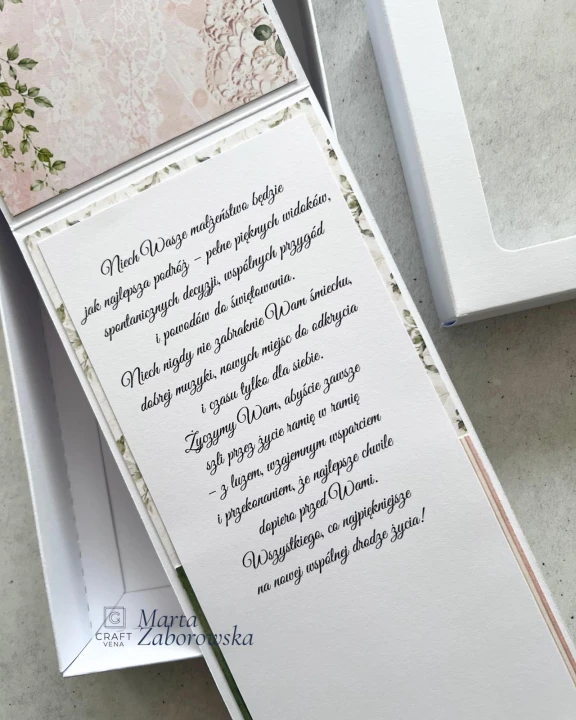 Niech Wasze małżeństwo będzie
jak najlepsza podróż – pełne pięknych widoków,
spontanicznych decyzji, wspólnych przygód
i powodów do świętowania.
Niech nigdy nie zabraknie Wam śmiechu,
dobrej muzyki, nowych miejsc do odkrycia
i czasu tylko dla siebie.
Życzymy Wam, abyście zawsze
szli przez życie ramię w ramię
– z luzem, wzajemnym wsparciem
i przekonaniem, że najlepsze chwile
dopiero przed Wami.
Wszystkiego, co najpiękniejsze
na nowej wspólnej drodze życia!
CRAFT
VENA
Marta
Zaborowska